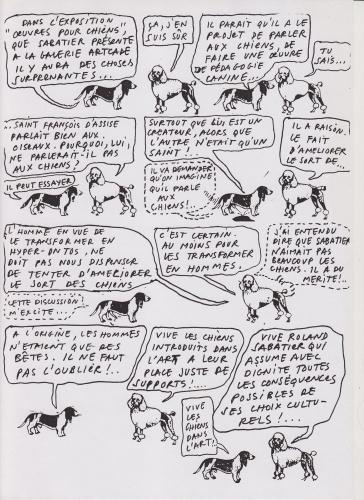 DANS L'EXPOSITION
"ŒUVRES POUR CHIENS",
QUE SABATIER PRÉSENTE
A LA GALERIE ARTCADE
IL Y AURA DES CHOSES
SURPRENANTES...
ÇA, J'EN
SUIS SÛR
IL PARAIT QU'IL A LE
PROJET DE PARLER
AUX CHIENS, DE
FAIRE UNE ŒUVRE
DE PÉDAGOGIE
CANINE...
TU
SAIS...
..SAINT FRANÇOIS D'ASSISE
PARLAIT BIEN AUX
OISEAUX. POURQUOI, LUI,
NE PARLERAIT-IL PAS
AUX CHIENS?
IL PEUT ESSAYER
SURTOUT QUE LUI, EST UN
CREATEUR, ALORS QUE
L'AUTRE N'ETAIT QU'UN
SAINT!..
IL VA DEMANDER
QU'ON IMAGINE
QU'IL PARLE
AUX
CHIENS!..
IL A RAISON.
LE FAIT
D'AMELIORER
LE SORT DE...
L'HOMME EN VUE DE
LE TRANSFORMER EN
HYPER-ONTOS, NE
DOIT PAS NOUS DISPENSER
DE TENTER D'AMELIORER
LE SORT DES CHIENS
CETTE DISCUSSION
M'EXCITE...
C'EST CERTAIN.
AU MOINS POUR
LES TRANSFORMER
EN HOMMES.
J'AI ENTENDU
DIRE QUE SABATIER
N'AIMAIT PAS
BEAUCOUP LES
CHIENS. IL A DU
MERITE!..
A L'ORIGINE, LES HOMMES
N'ETAIENT QUE DES
BÊTES. IL NE FAUT
PAS L'OUBLIER!..
VIVE LES CHIENS
INTRODUITS DANS
L'ART A LEUR
PLACE JUSTE DE
SUPPORTS!...
VIVE
LES
CHIENS
DANS
L'ART!
VIVE ROLAND
SABATIER QUI
ASSUME AVEC
DIGNITE TOUTES
LES CONSÉQUENCES
POSSIBLES DE
SES CHOIX CULTU-
RELS!...